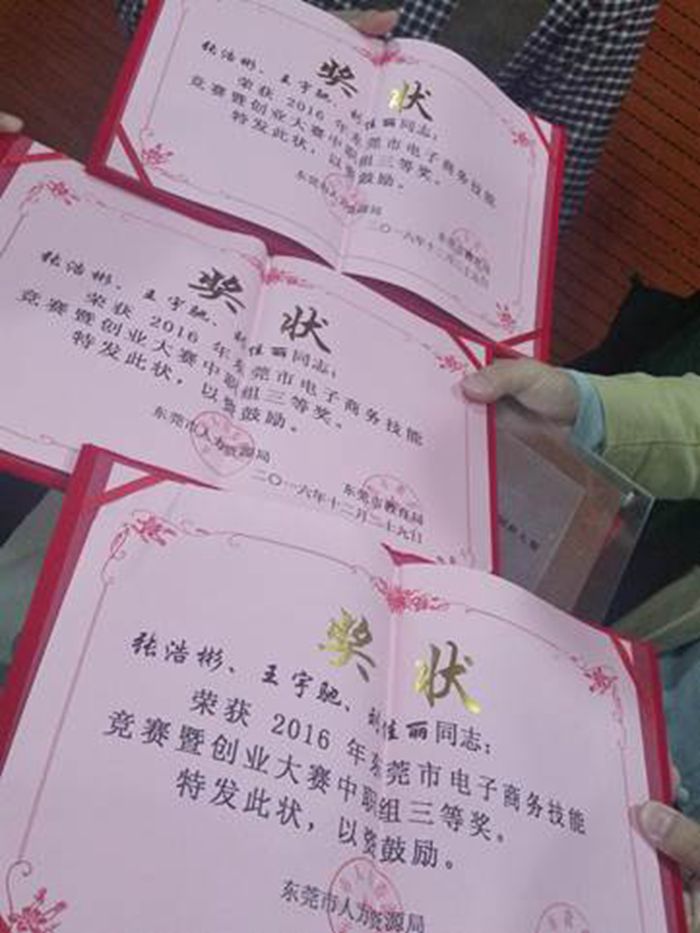 奖状
张浩彬、王宇驰、 佳丽同志：
荣获 2016 年东莞市电子商务技能
竞赛暨创业大赛中职组三等奖。
特发此状，以资鼓励。
东莞市人力资源局
东莞市教育局
二〇一六年十二月二十九日
奖状
张浩彬、王宇驰、 佳丽同志：
荣获 2016 年东莞市电子商务技能
竞赛暨创业大赛中职组三等奖。
特发此状，以资鼓励。
东莞市人力资源局
东莞市教育局
二〇一六年十二月二十九日
奖状
张浩彬、王宇驰、 佳丽同志：
荣获 2016 年东莞市电子商务技能
竞赛暨创业大赛中职组三等奖。
特发此状，以资鼓励。
东莞市人力资源局